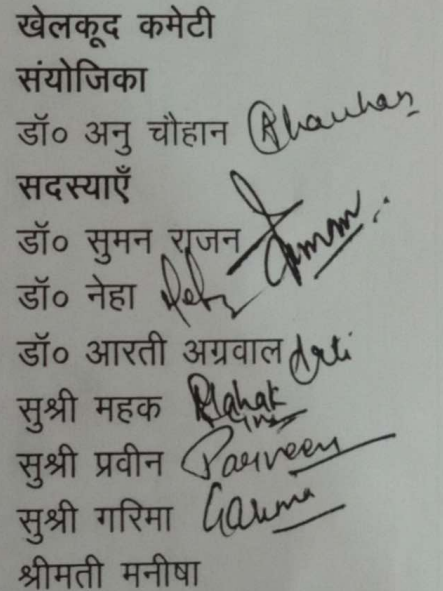 खेलकूद कमेटी
संयोजिका
डॉ० अनु चौहान Chauhan
सदस्याएँ
डॉ० सुमन राजन
डॉ० नेहा
डॉ० आरती अग्रवाल Arti
सुश्री महक Mahak
सुश्री प्रवीन Parveen
सुश्री गरिमा Garima
श्रीमती मनीषा